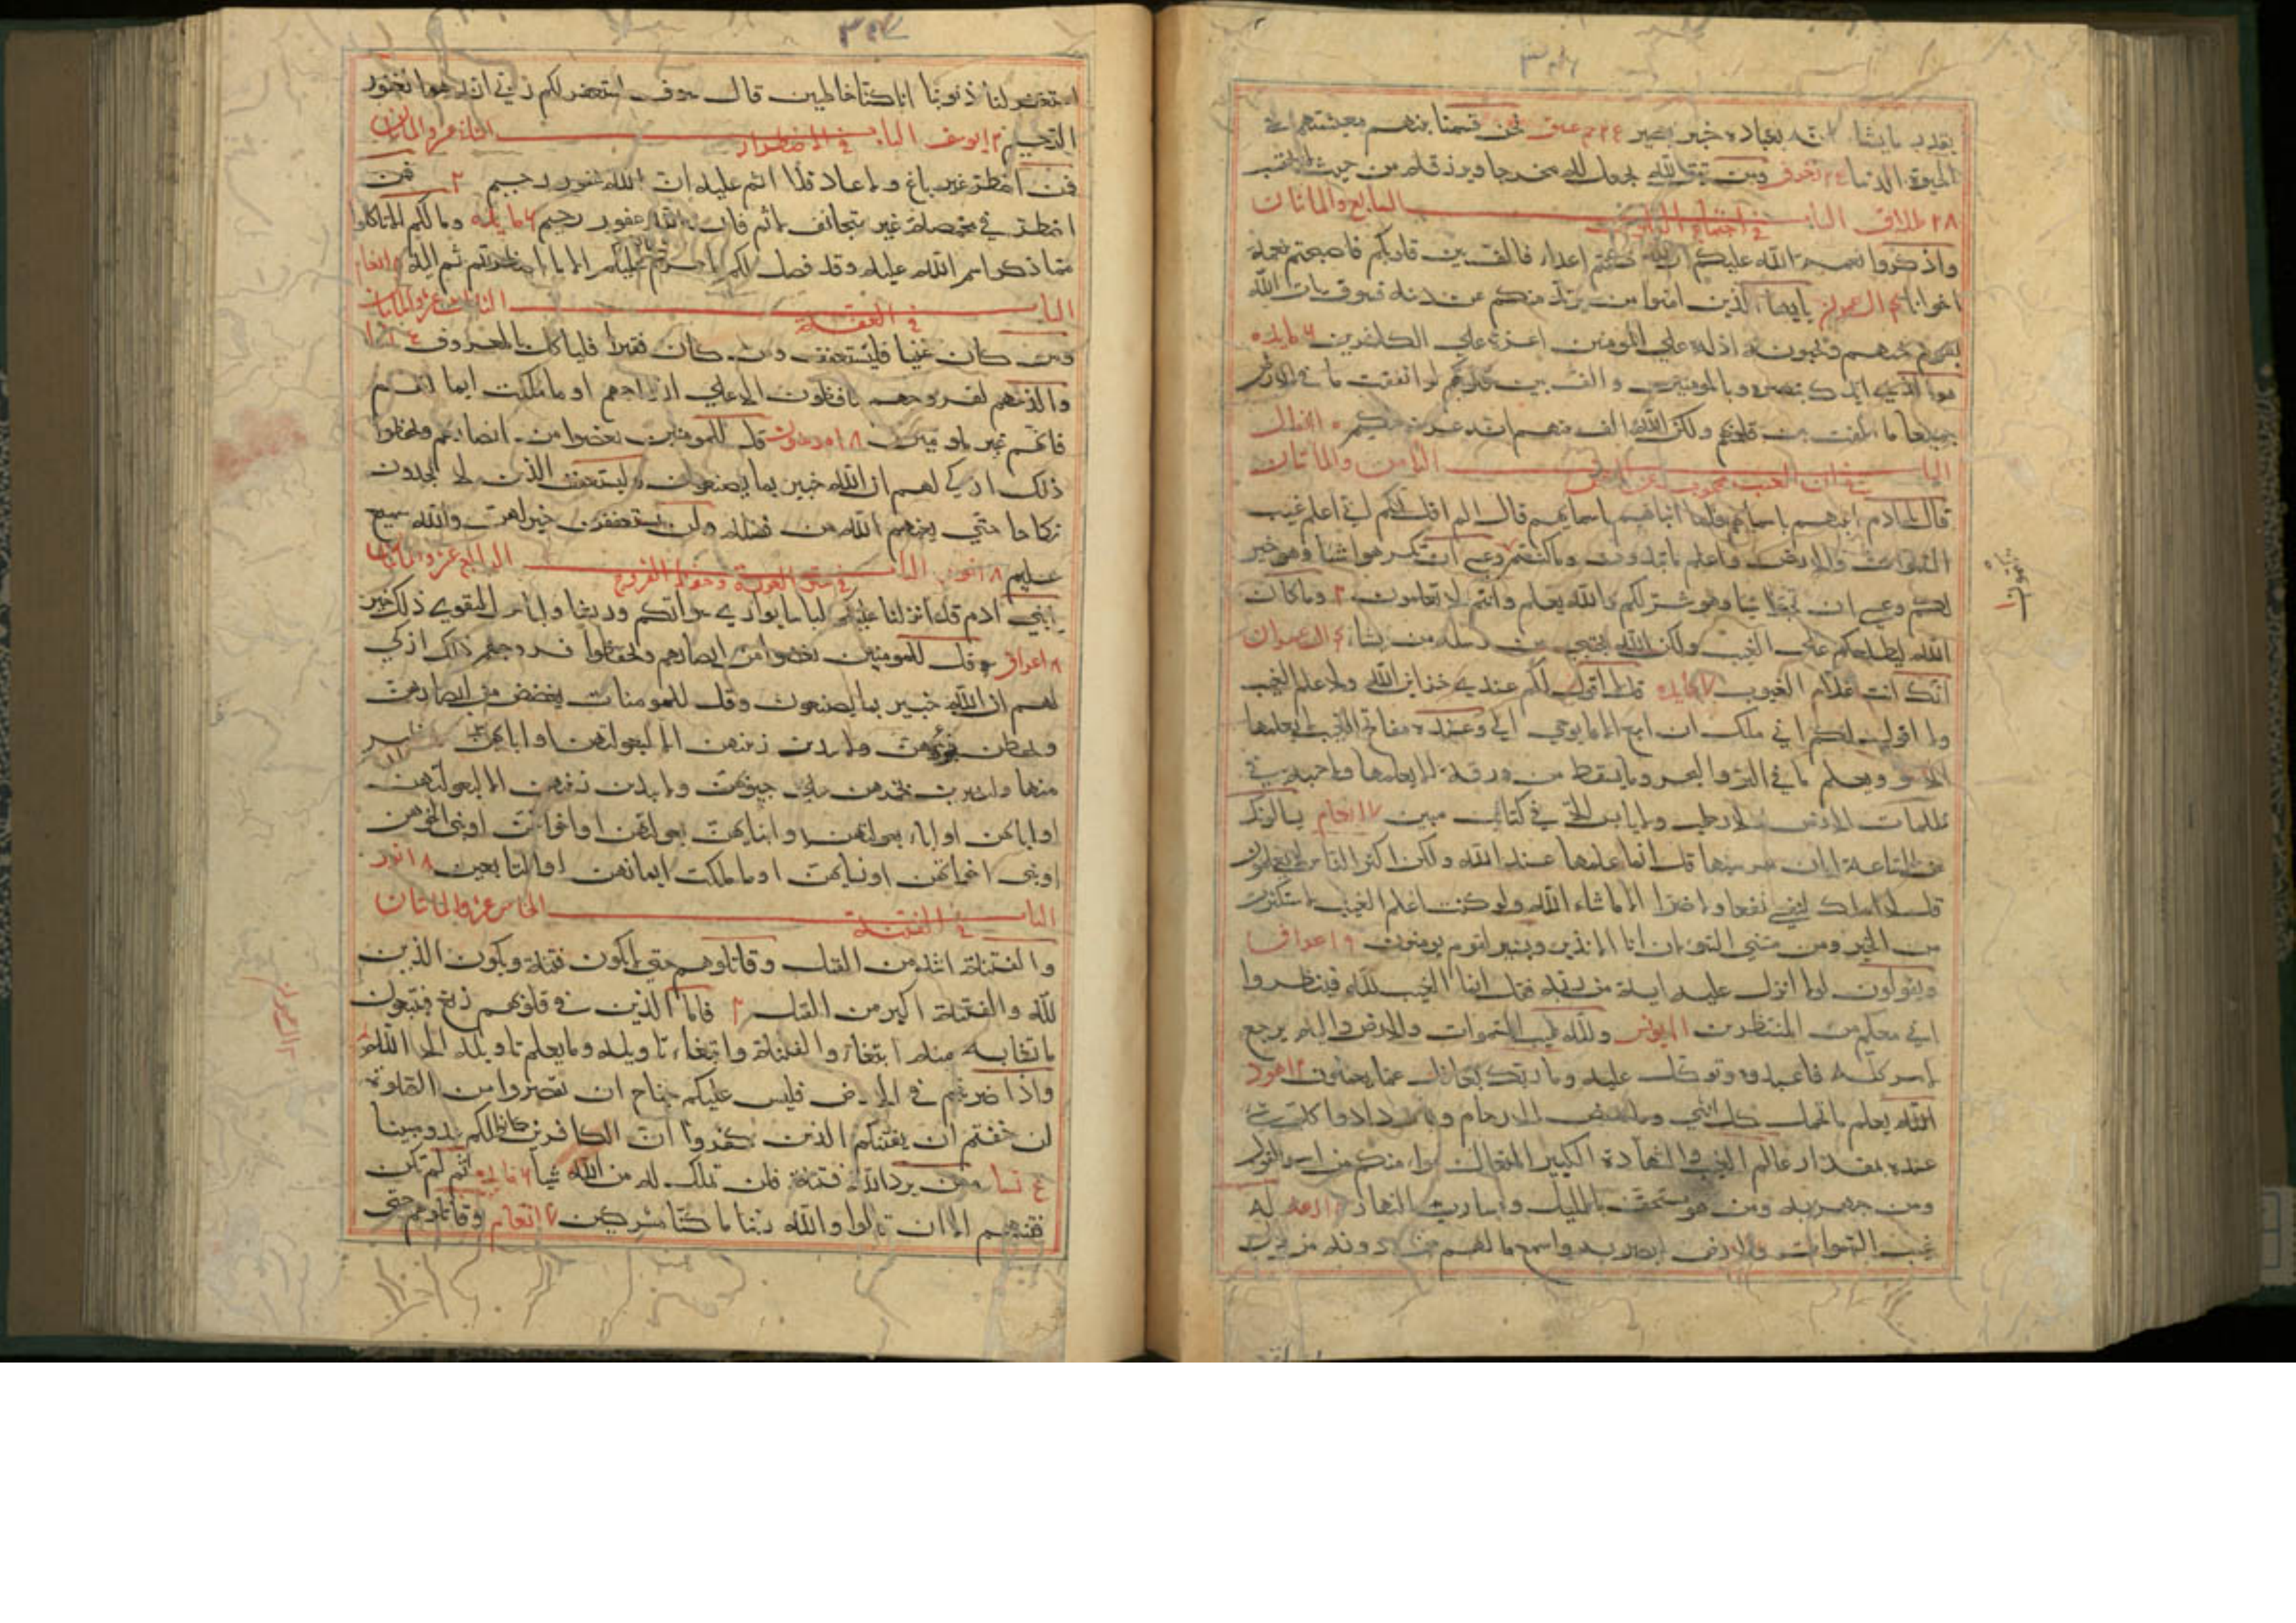 بقدر ما يشا انه بعباده خبير بصير ٢٤ حم عسق نحن قسمنا بينهم معيشتهم في
الحيوة الدنيا ٢٤ زخرف ومن يتق الله يجعل لله مخرجا ويرزقه من حيث لا يحتسب
٢٨ طلاق الباب في اجتماع القلوب السابع والماتان
واذكروا نعمة الله عليكم اذ كنتم اعداء فالف بين قلوبكم فاصبحتم بنعمة
اخوانا ٤ ال عمرن يايها الذين امنوا من يرتد منكم عن دينه فسوف يات الله
بقوم يحبهم ويحبونه اذلة علي المومنين اعزة علي الكفرين ٦ مايده
هوا لذي ايدك بنصره وبالمومنين والف بين قلوبهم لو انفقت ما في الارض
جميعا ما الفت بين قلوبهم ولكن الله الف بينهم انه عزيز حكيم انفال
الباب في ان الغيب الثامن والماتان
قال يادم انبهم باسمايهم فلما انباهم باسمايهم قال الم اقل لكم اني اعلم غيب
السموات والارض واعلم ماتبدون وما كنتم وعسي ان تكرهوا شيا وهو خير
لكم وعسي ان تحبوا شيا وهو شر لكم والله يعلم وانتم لا تعلمون ٢ وما كان
الله ليطلعكم علي الغيب ولكن الله يجتبي من رسله من يشا ٤ ال عمران
انك انت علام الغيوب ٧ مايده قل لا اقول لكم عندي خزاين الله ولا اعلم الغيب
ولا اقول لكم اني ملك ان اتبع الا ما يوحي الي وعنده مفاتح الغيب لا يعلمها
الا هو ويعلم ما في البر والبحر وما يسقط من ورقة الا يعلمها ولا حبة في
ظلمات الارض ولا رطب ولا يابس الا في كتاب مبين ٧ انعام يسالونك
عن الساعة ايان مرسيها قل انما علمها عند الله ولكن اكثر الناس لا يعلمون
قل لا املك لنفسي نفعا ولا ضرا الا ما شاء الله ولو كنت اعلم الغيب لاستكثرت
من الخير ومن مسني السوء ان انا الا نذير وبشير لقوم يومنون ٩ اعراف
ويقولون لولا انزل عليه اية من ربه فقل انما الغيب لله فانتظروا
اني معكم من المنتظرين ١١ يونس ولله غيب السموات والارض واليه يرجع
الامر كله فاعبده وتوكل عليه وما ربك بغافل عما يعملون ١٢ هود
الله يعلم ما تحمل كل انثي وما تغيض الارحام وما تزدادوا كل شي
عنده بمقدار عالم الغيب والشهادة الكبير المتعال سواء منكم من اسر القول
ومن جهر به ومن هو مستخف بالليل وسارب بالنهار ١٣ رعد له
غيب السموات والارض ابصر به واسمع مالهم من دونه من ولي
استغفر لنا ذنوبنا انا كنا خاطيين قال سوف استغفر لكم ربي انه هوا لغفور
الرحيم ١٣ يوسف الباب في الاضطرار الثاني عشر والماتان
فمن اضطر غير باغ ولا عاد فلا اثم عليه ان الله غفور رحيم ٢ فمن
اضطر في مخمصة غير متجانف لاثم فان الله غفور رحيم ٦ مايده ومالكم الا تاكلوا
مما ذكر اسم الله عليه وقد فصل لكم ما حرم عليكم الا ما اضطررتم اليه ٨ انعام
الباب في العفة الثالث عشر والماتان
ومن كان غنيا فليستعفف ومن كان فقيرا فلياكل بالمعروف ٤ نسا
والذينهم لفروجهم حافظون الا علي ازواجهم او ما ملكت ايمانهم
فانهم غير ملومين ١٨ مومنون قل للمومنين يغضوا من ابصارهم ويحفظوا
ذلك ازكي لهم ان الله خبير بما يصنعون وليستعفف الذين لا يجدون
نكاحا حتي يغنيهم الله من فضله وان يستعففن خير لهن والله سميع
عليم ١٨ نور الباب في ستر العورة وحفظ الفروج الرابع عشر والماتان
يبني ادم قد انزلنا عليكم لباسا يواري سواتكم وريشا ولباس التقوي ذلك خير
٨ اعراف قل للمومنين يغضوا من ابصارهم ويحفظوا فروجهم ذلك ازكي
لهم ان الله خبير بما يصنعون وقل للمومنات يغضضن من ابصارهن
ويحفظن فروجهن ولا يبدين زينتهن الا لبعولتهن او اباهن
منها وليضربن بخمرهن علي جيوبهن ولا يبدين زينتهن الا لبعولتهن
او ابايهن او اباء بعولتهن او ابنايهن بعولتهن او اخوانهن او بني اخوانهن
او بني اخواتهن او نسايهن او ما ملكت ايمانهن او التابعين ١٨ نور
الباب في الفتنة الخامس عشر والماتان
والفتنة اشد من القتل وقاتلوهم حتي لا يكون فتنة ويكون الذين
لله والفتنة اكبر من القتل ٢ فاما الذين في قلوبهم زيغ فيتبعون
ما تشابه منه ابتغاء والفتنة وابتغاء تاويله وما يعلم تاويله الا الله
واذا ضربتم في الارض فليس عليكم جناح ان تقصروا من الصلوة
ان خفتم ان يفتنكم الذين كفروا ان الكافرين كانوا لكم عدو مبينا
٤ نسا ومن يرد الله فتنة فلن تملك له من الله شيا ٦ مايده ثم لم تكن
فتنتهم الا ان قالوا والله ربنا ما كنا مشركين ٧ انعام وقاتلوهم حتي
ال عمران